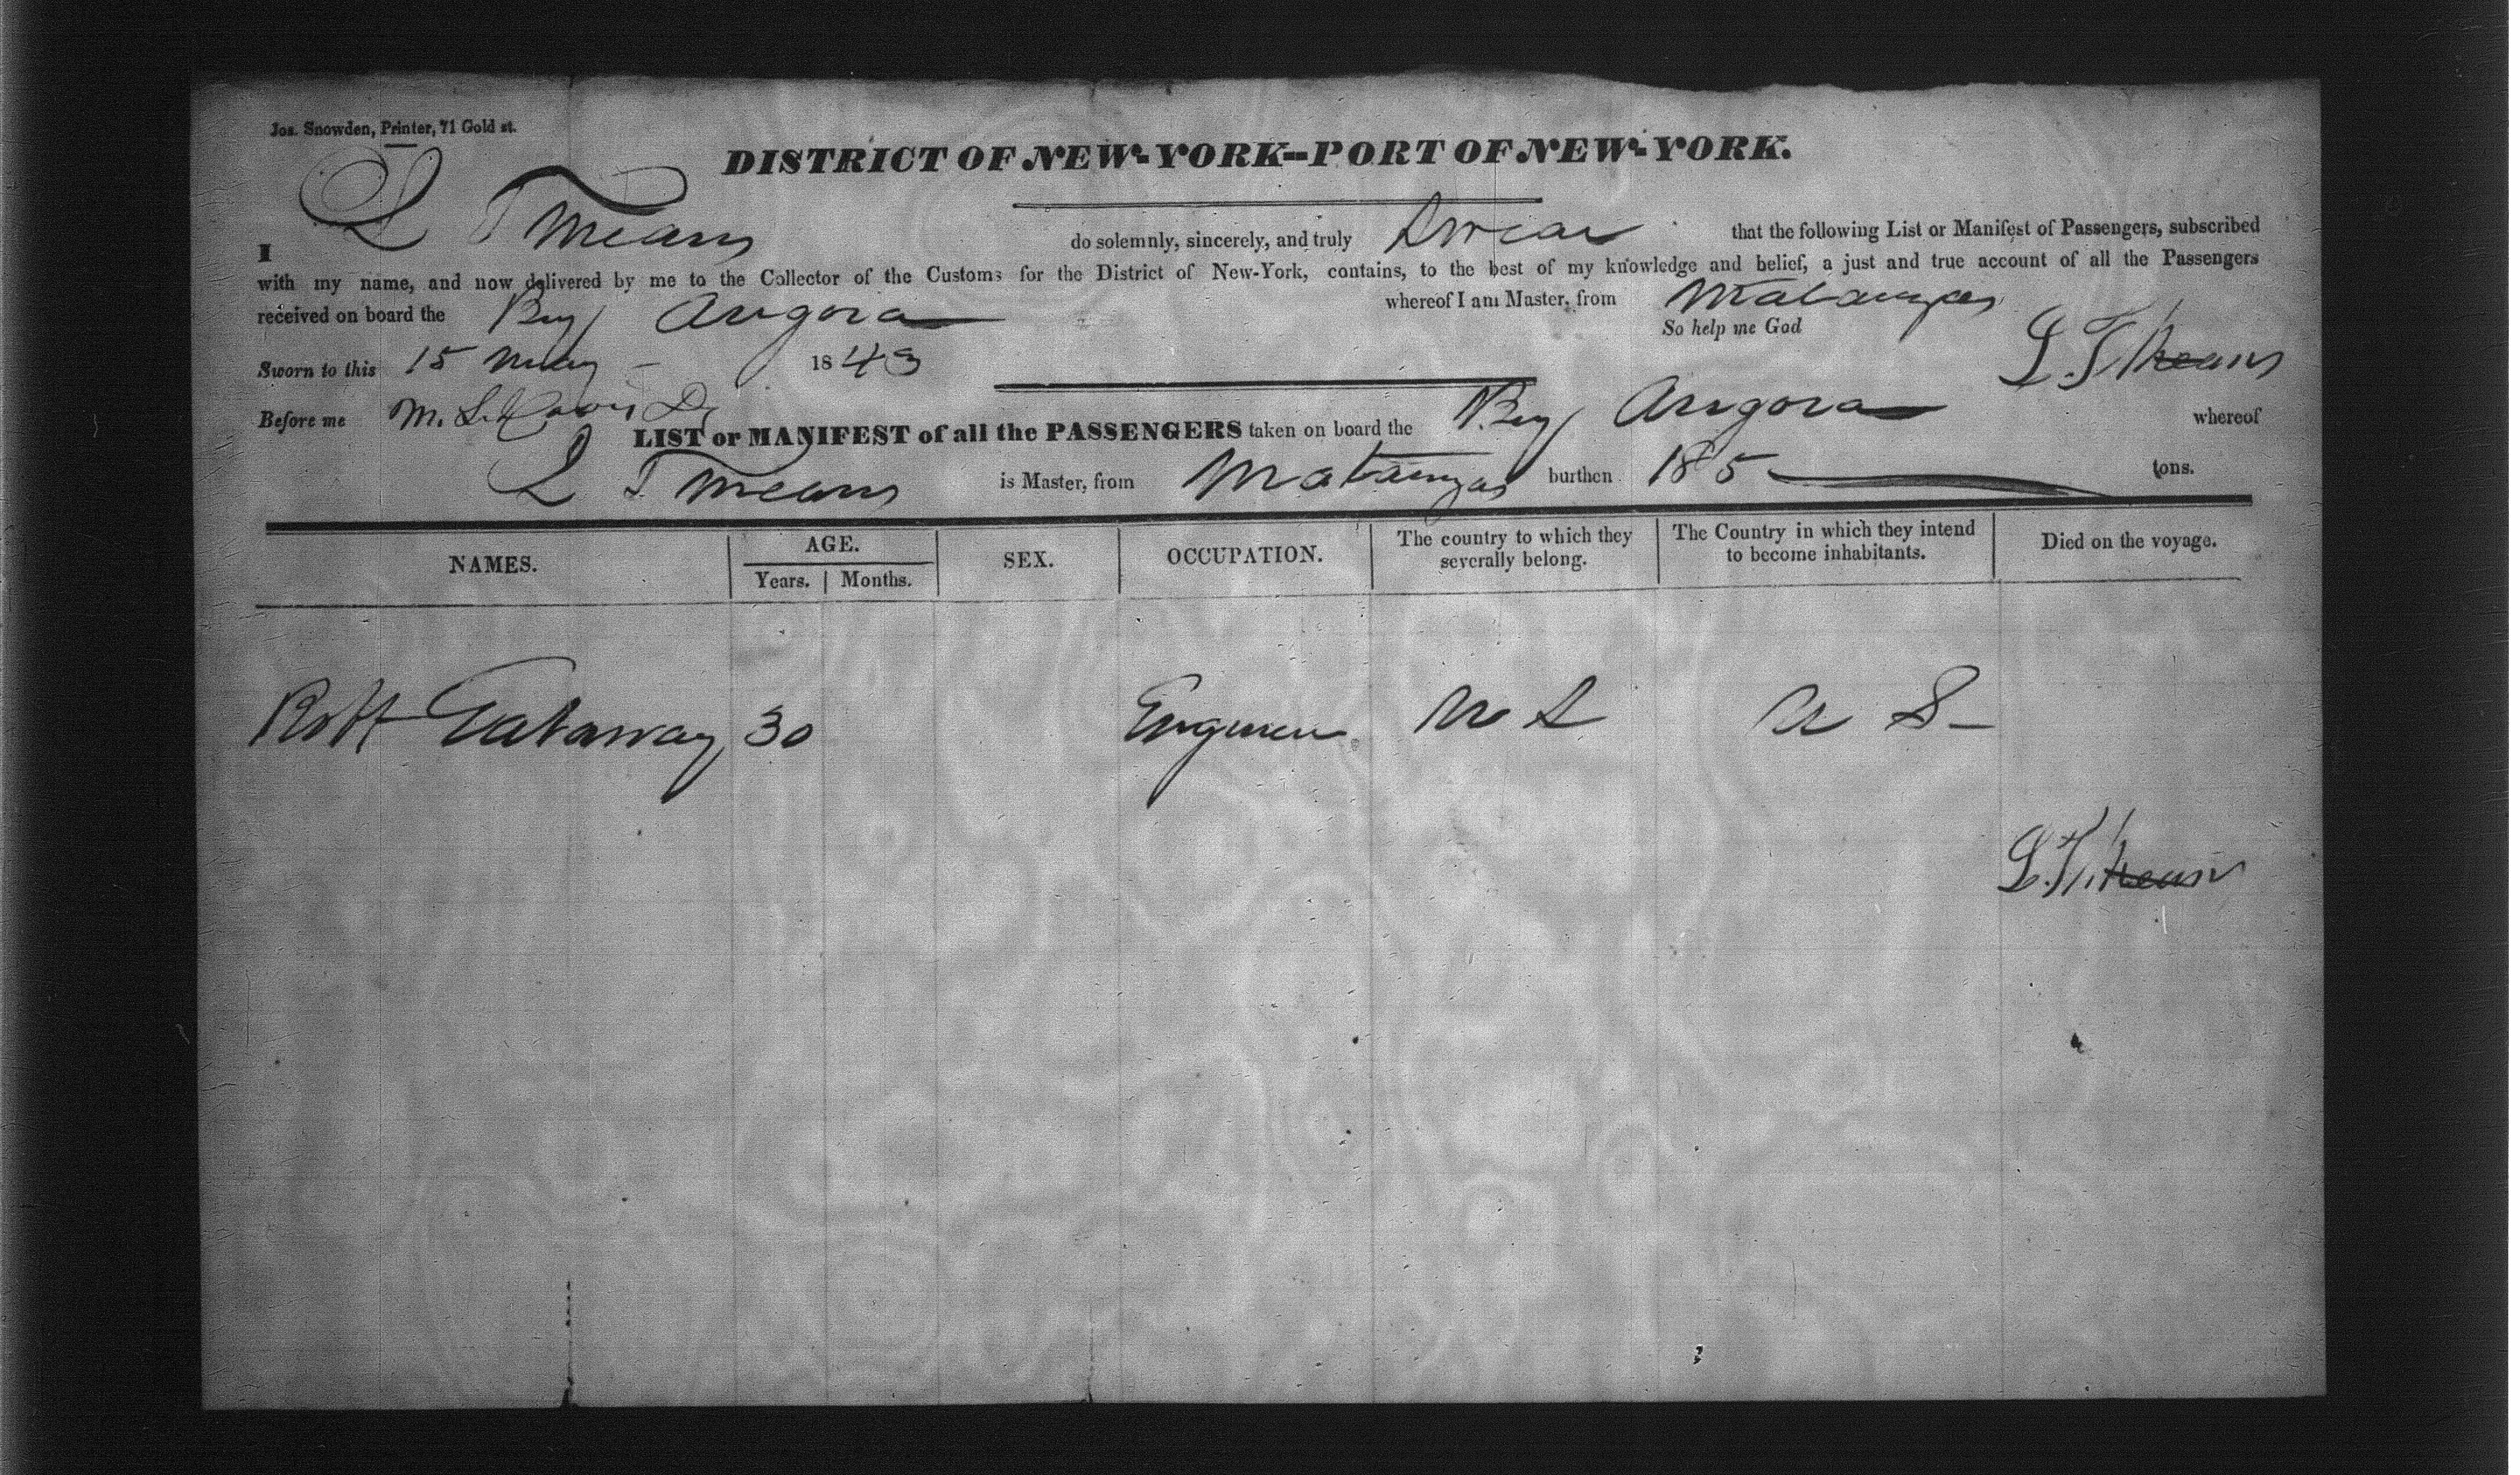 Jos. Snowden, Printer, 71 Gold st.
DISTRICT OF NEW-YORK--PORT OF NEW-YORK.
I L T Means do solemnly, sincerely, and truly Swear that the following List or Manifest of Passengers, subscribed
with my name, and now delivered by me to the Collector of the Customs for the District of New-York, contains, to the best of my knowledge and belief, a just and true account of all the Passengers
received on board the Brig Angora whereof I am Master, from Matanzas
So help me God
Sworn to this 15 May - 1843 L. T. Means
Before me M.
LIST or MANIFEST of all the PASSENGERS taken on board the Brig Angora whereof
L T Means is Master, from Matanzas burthen 185 tons.
NAMES. AGE. Years. Months. SEX. OCCUPATION. The country to which they severally belong. The Country in which they intend to become inhabitants. Died on the voyage.
Robt 30 Engineer U S U S -
L. T. Means